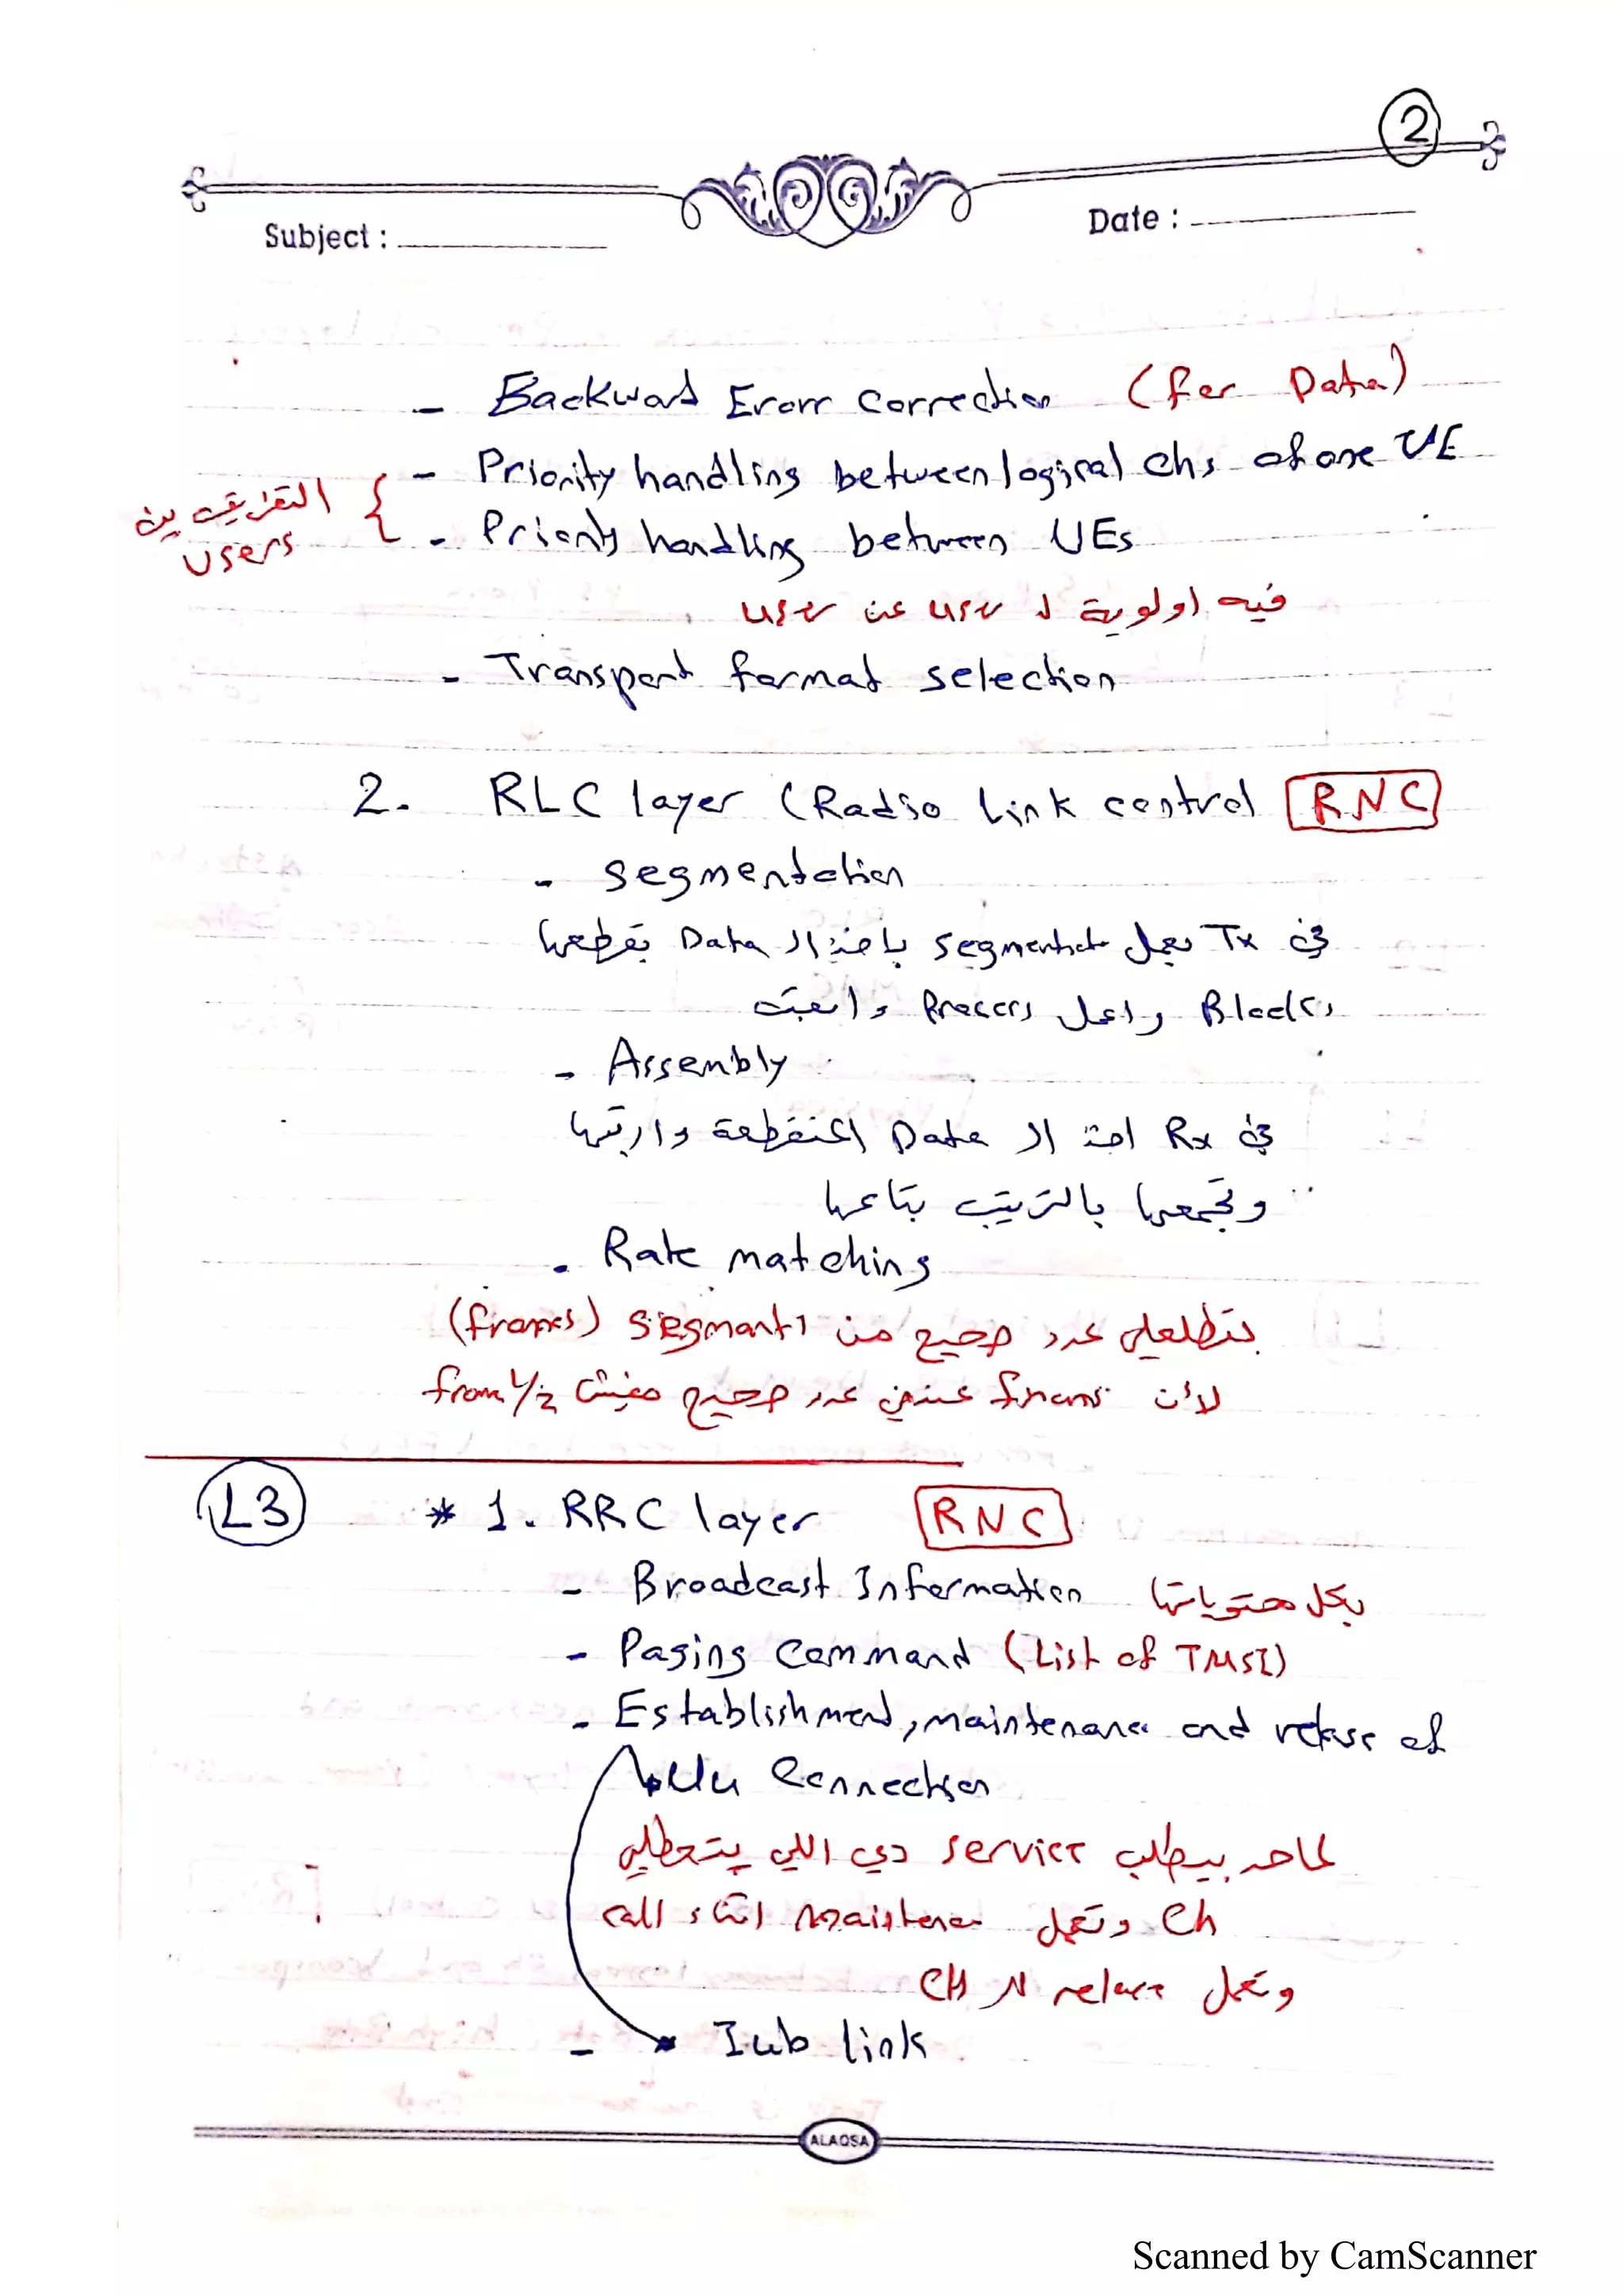 2
Subject :
Date :
- Backward Erorr correction (for Data)
- Priority handling between logical chs of one UE
التفريق بين users
- Priority handling between UEs
فيه اولوية لـ user عن user
- Transport format selection
2. RLC layer (Radio Link control RNC
- segmentation
في Tx بعمل segmentat باخد ال Data بقطعها
Blocks واعمل Process وابعته
- Assembly
في Rx اخد ال Data المتقطعة وارتبها
وتجمعها بالترتيب بتاعها
- Rate matching
بتطلعلي عدد صحيح من segments (frames)
لان عندي عدد صحيح مفيش 1/2
L3
* 1. RRC layer RNC
- Broadcast Information بكل محتوياتها
- Paging Command (List of TMSI)
- Establishment, maintenance and release of
Uu Connection
لما حد بيطلب service دي اللي بتعطلي
ch وتعمل maintenance اثناء call
وتعمل release لل CH
- * Iub link
ALAQSA
Scanned by CamScanner